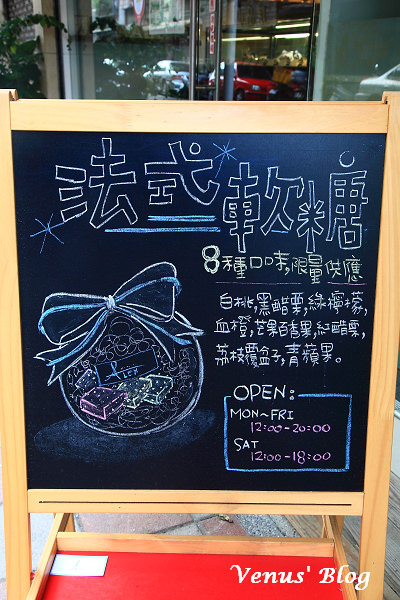 法式軟糖
8種口味,限量供應
白桃,黑醋栗,綠檸檬,
血橙,芒果百香果,紅醋栗,
荔枝覆盆子,青蘋果。
OPEN:
MON~FRI
12:00-20:00
SAT
12:00-18:00
Venus' Blog